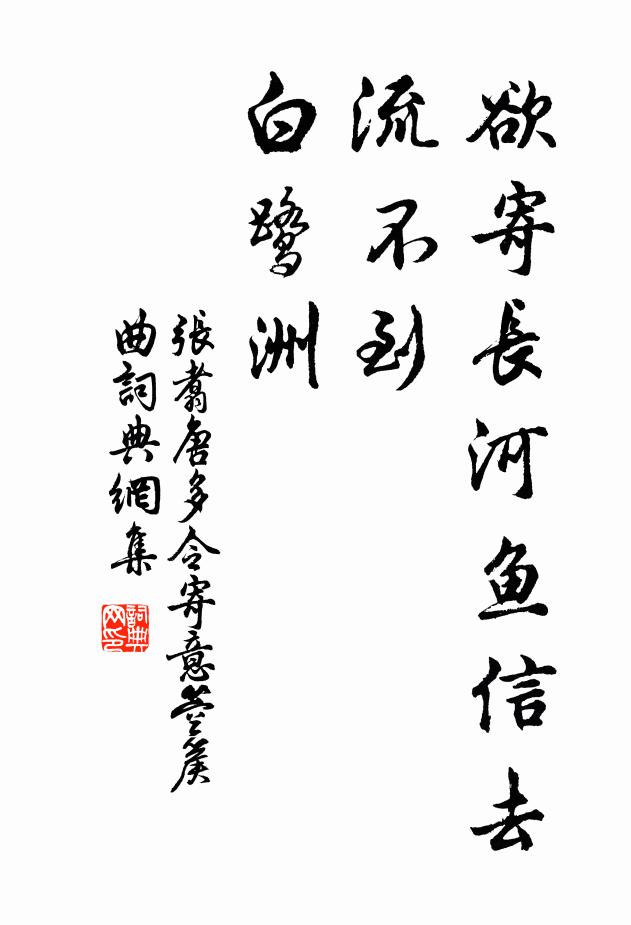 欲寄長河魚信去
流不到
白鷺洲
張翥唐多令寄意箜篌
曲詞典網集
詞典網印